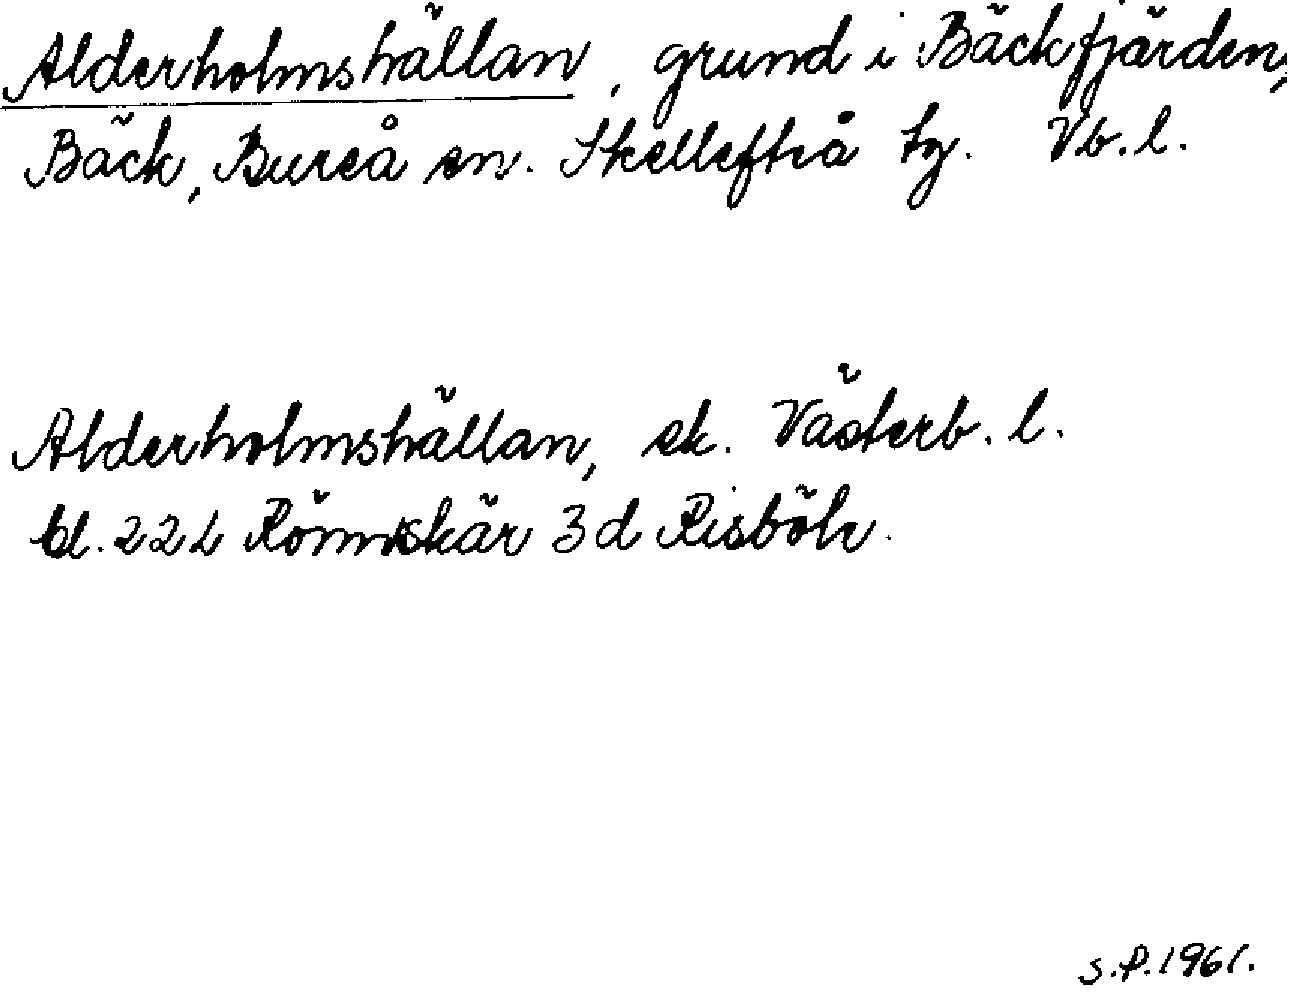 Alderholmshällan, grund i Bäckfjärden,
Bäck, Bureå sn. Skellefteå tg. Vb. l.
Alderholmshällan, ek. Västerb. l.
bl. 22 L Rönnskär 3 d Risböle.
S.P. 1961.